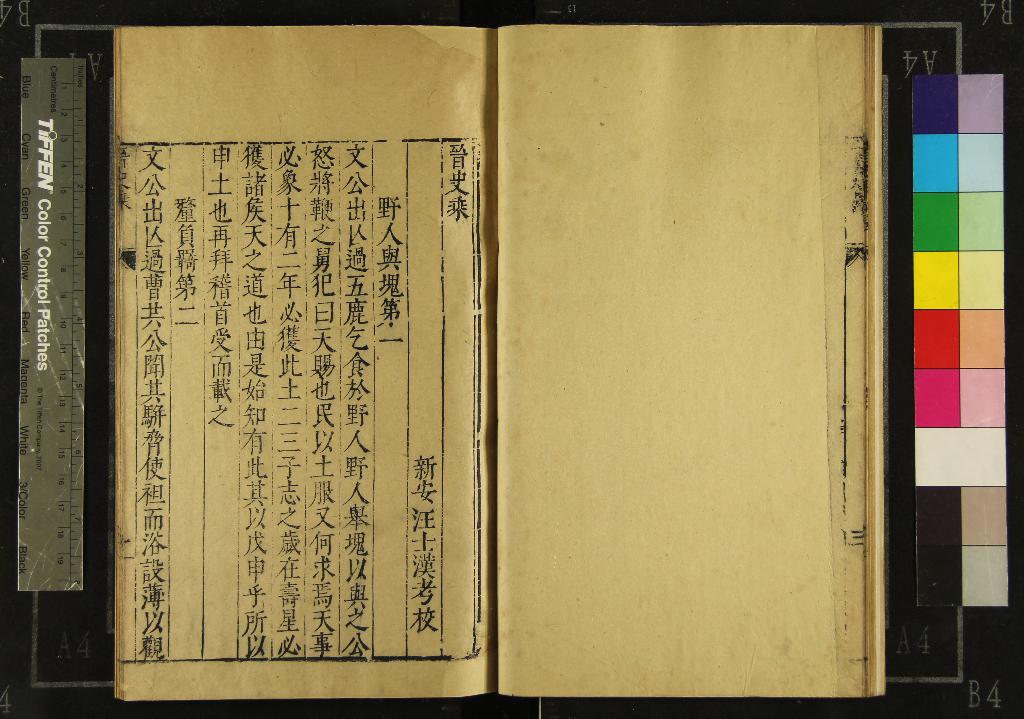 晉史乘
新安汪士漢考校
野人與塊第一
文公出亾過五鹿乞食於野人野人舉塊以與之公
怒將鞭之舅犯曰天賜也民以土服又何求焉天事
必象十有二年必獲此土二三子志之歲在壽星必
獲諸矦天之道也由是始知有此其以戊申乎所以
申土也再拜稽首受而載之
釐負羈第二
文公出亾過曹共公聞其駢脅使袒而浴設薄以觀
TIFFEN Color Control Patches
© The Tiffen Company, 2007
Centimetres
Inches
Blue
Cyan
Green
Yellow
Red
Magenta
White
3/Color
Black
1 2 3 4 5 6 7 8 9 10 11 12 13 14 15 16 17 18 19
B4
A4
B4
A4
A4
A4
B4